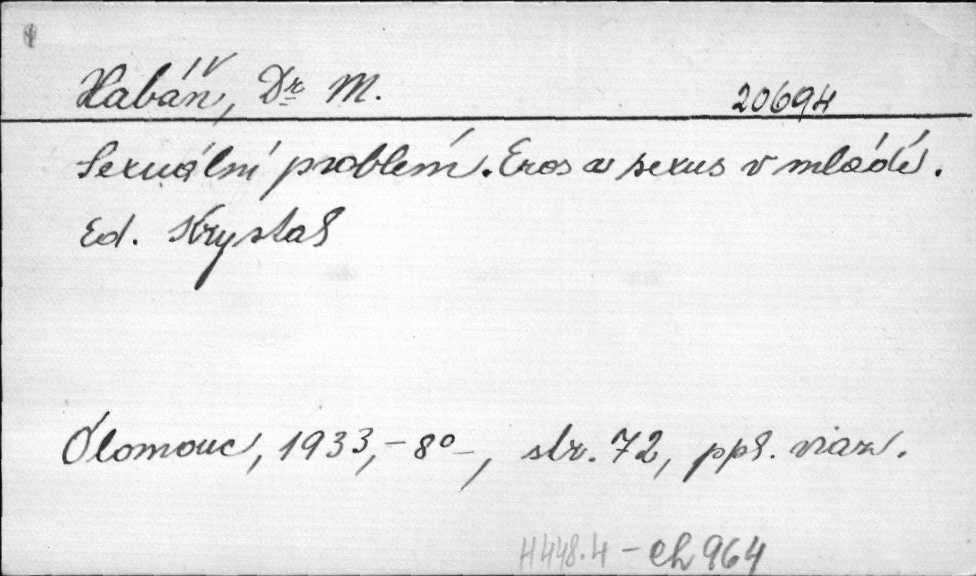 Habáň, Dr M. 20694
Sexuální problém. Eros a sexus v mládí.
Ed. Krystal
Olomouc, 1933, – 8° –, str. 72, ppl. viaz.
H448.4 – Ch 964